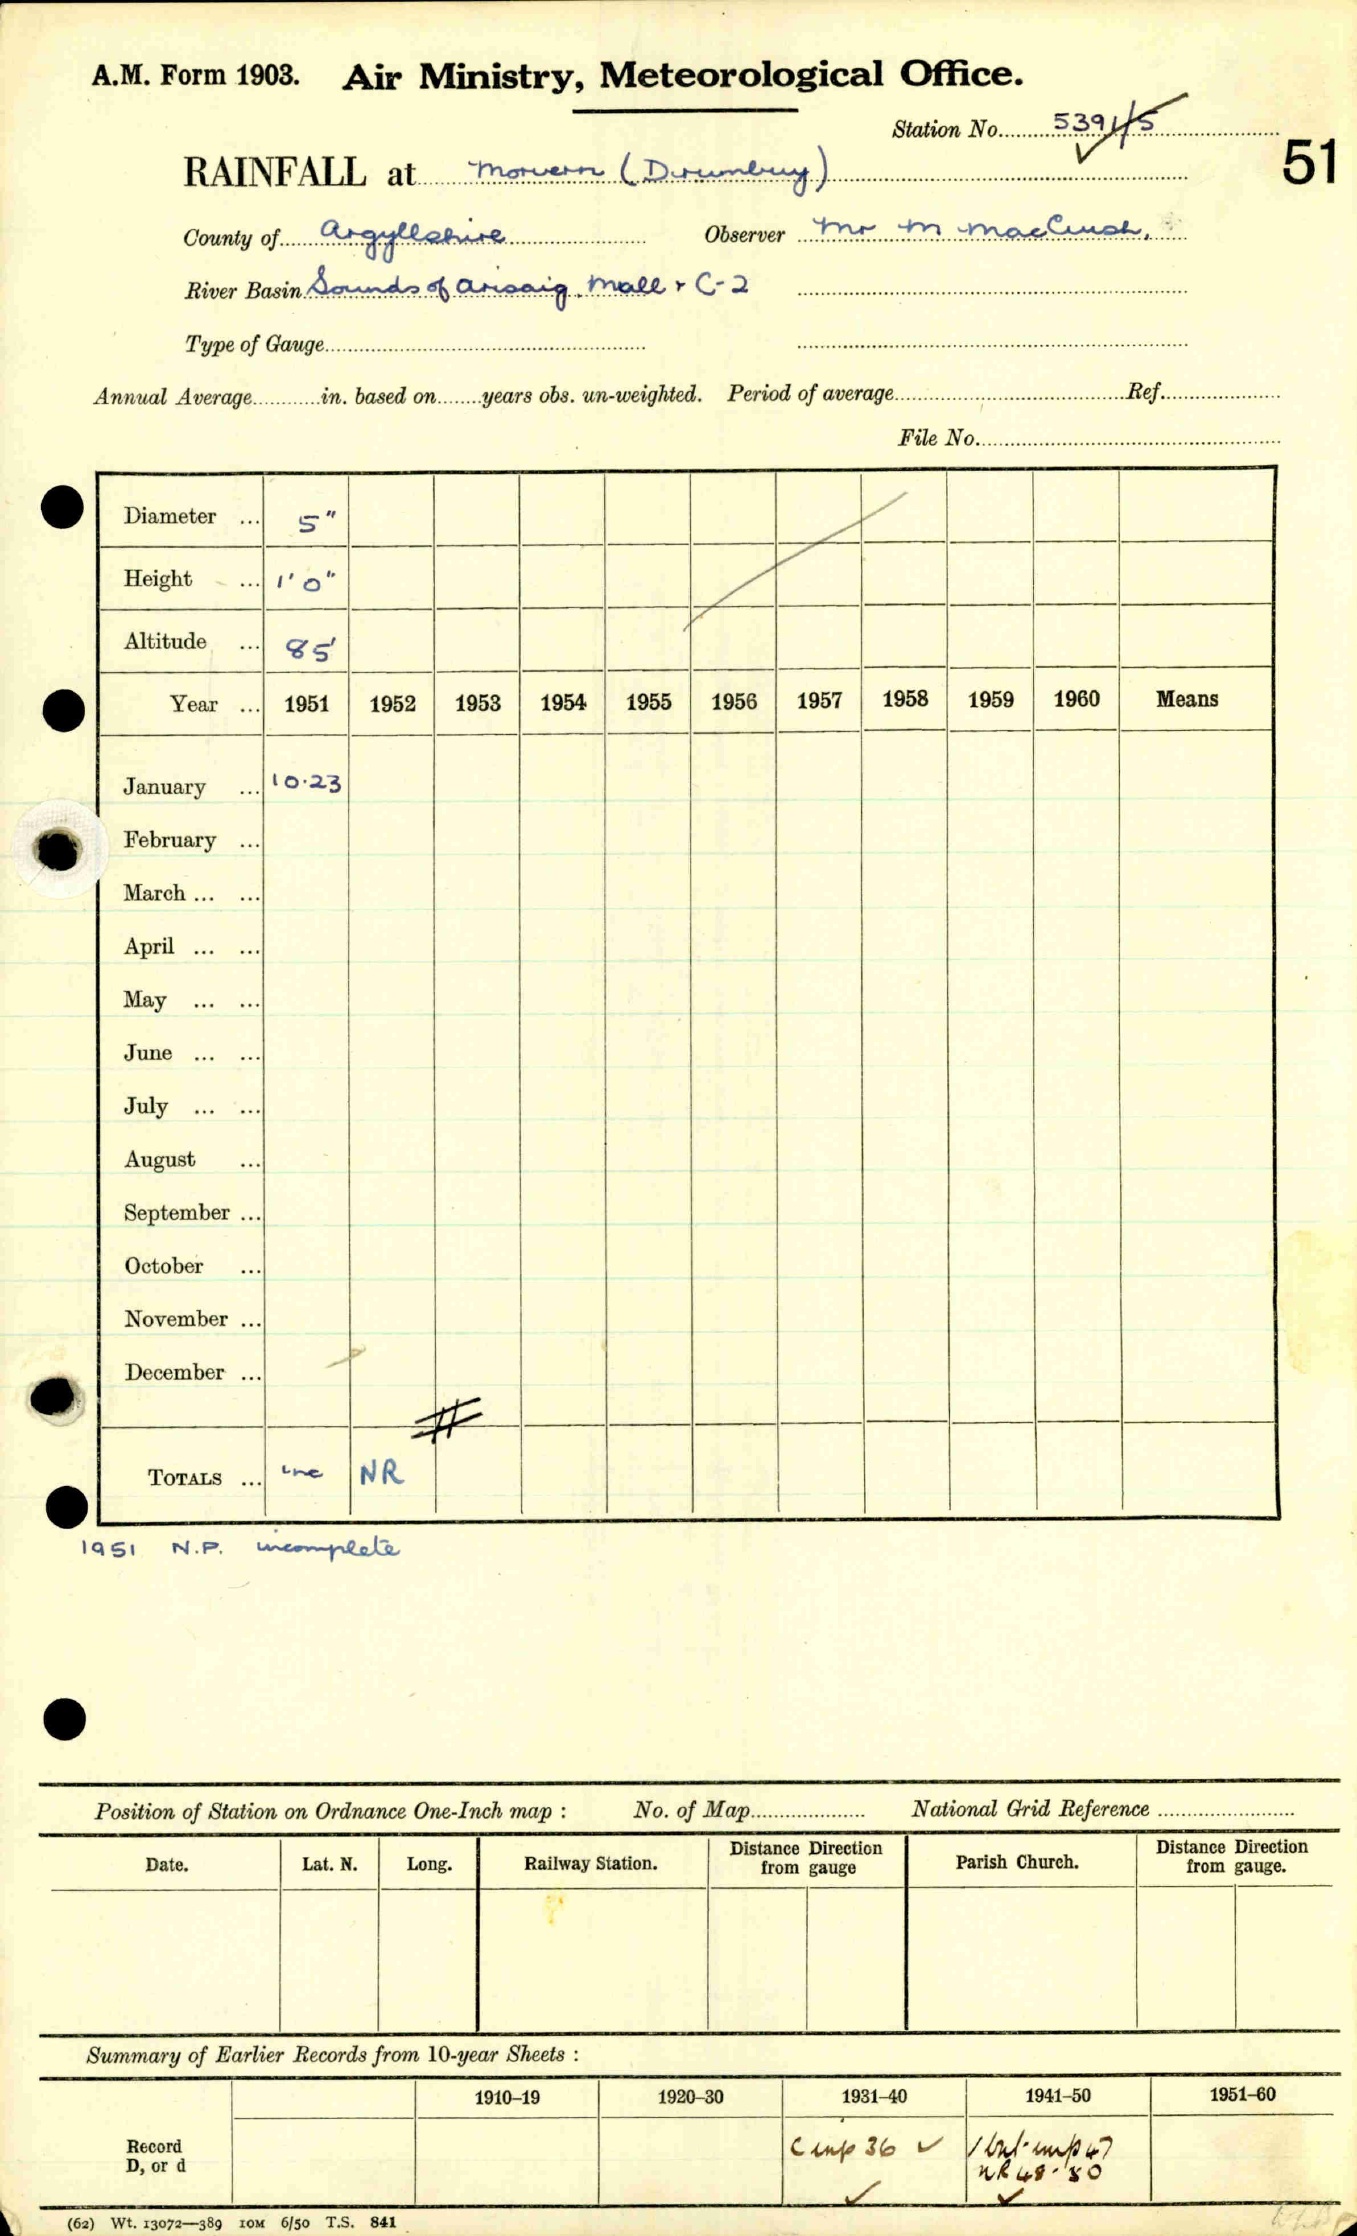 A.M. Form 1903. Air Ministry, Meteorological Office.
Station No. 5391/5
51
RAINFALL at Morvern (Drumbuy)
County of Argyllshire Observer Mr M
River Basin Sounds of Arisaig, Mull & C-2
Type of Gauge
Annual Average in. based on years obs. un-weighted. Period of average Ref.
File No.
Diameter ... 5"
Height ... 1' 0"
Altitude ... 85'
Year ... 1951 1952 1953 1954 1955 1956 1957 1958 1959 1960 Means
January ... 10.23
February ...
March ... ...
April ... ...
May ... ...
June ... ...
July ... ...
August ...
September ...
October ...
November ...
December ...
TOTALS ... inc NR
1951 N.P. incomplete
Position of Station on Ordnance One-Inch map : No. of Map National Grid Reference
Date. Lat. N. Long. Railway Station. Distance Direction from gauge Parish Church. Distance Direction from gauge.
Summary of Earlier Records from 10-year Sheets :
1910–19 1920–30 1931–40 1941–50 1951–60
Record D, or d C 36 47
NR 48-50
(62) Wt. 13072—389 10M 6/50 T.S. 841